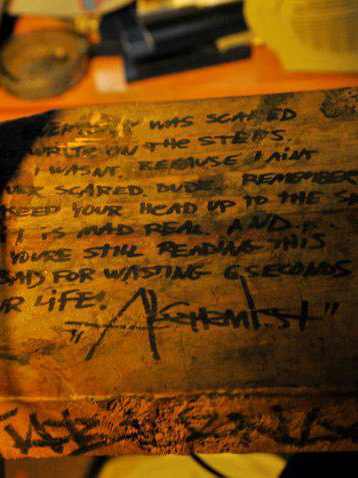 WAS SCARED
WRITE ON THE STEPS..
I WASNT. BECAUSE I AINT
SCARED, DUDE. REMEMBER
KEEP YOUR HEAD UP TO THE
I IS MAD REAL AND...
YOURE STILL READING THIS
BAD FOR WASTING 6 SECONDS
UR LIFE!
"ALCHEMIST"